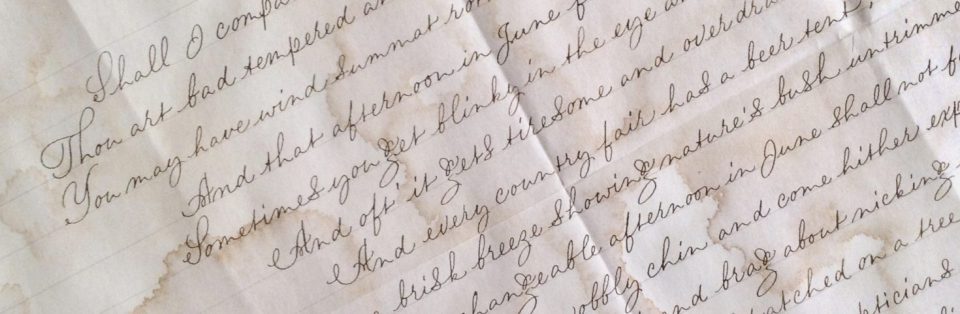 Shall I compa
Thou art bad tempered a
You may have wind summat ro
And that afternoon in June f
Sometimes you get blinky in the eye a
And oft' it gets tiresome and overdra
And every country fair has a beer tent,
brisk breeze showing nature's bush untrimme
hangeable afternoon in June shall not f
obbly chin and come hither exp
nd brag about nicking
atched on a tree
eticians